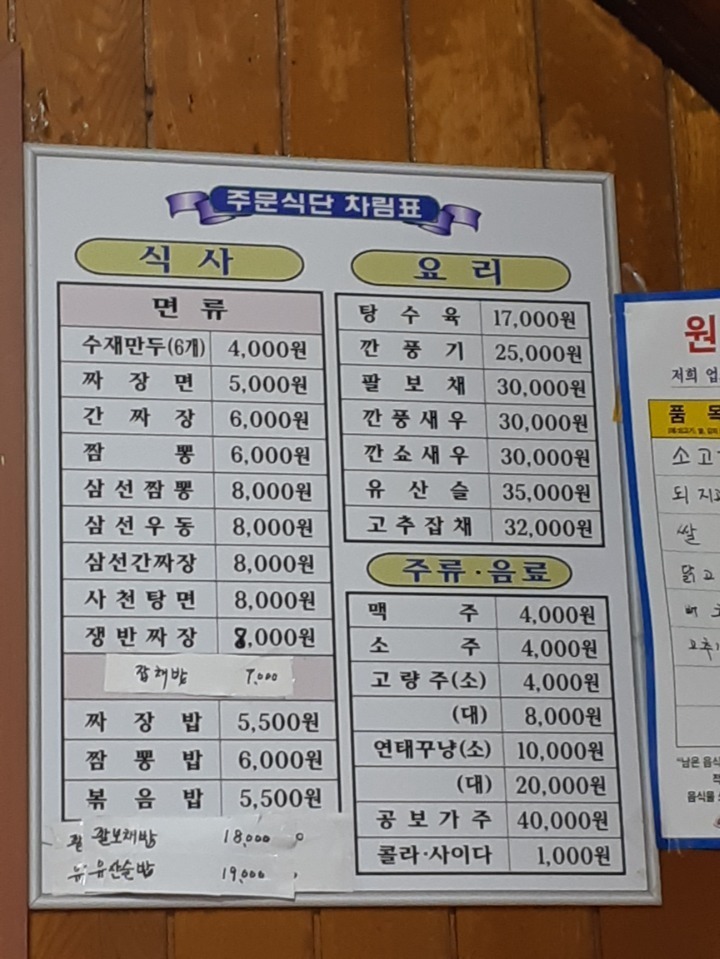 주문식단 차림표
식 사
면 류
수재만두(6개) 4,000원
짜 장 면 5,000원
간 짜 장 6,000원
짬 뽕 6,000원
삼선짬뽕 8,000원
삼선우동 8,000원
삼선간짜장 8,000원
사천탕면 8,000원
쟁반짜장 8,000원
잡채밥 7,000
짜 장 밥 5,500원
짬 뽕 밥 6,000원
볶 음 밥 5,500원
팔보채밥 18,000
유산슬밥 19,000
요 리
탕 수 육 17,000원
깐 풍 기 25,000원
팔 보 채 30,000원
깐풍새우 30,000원
깐쇼새우 30,000원
유 산 슬 35,000원
고추잡채 32,000원
주류·음료
맥 주 4,000원
소 주 4,000원
고량주(소) 4,000원
(대) 8,000원
연태꾸냥(소) 10,000원
(대) 20,000원
공보가주 40,000원
콜라·사이다 1,000원
원
저희 업
품 목
소고
되지
쌀
닭고
고추
"남은 음식
음식물